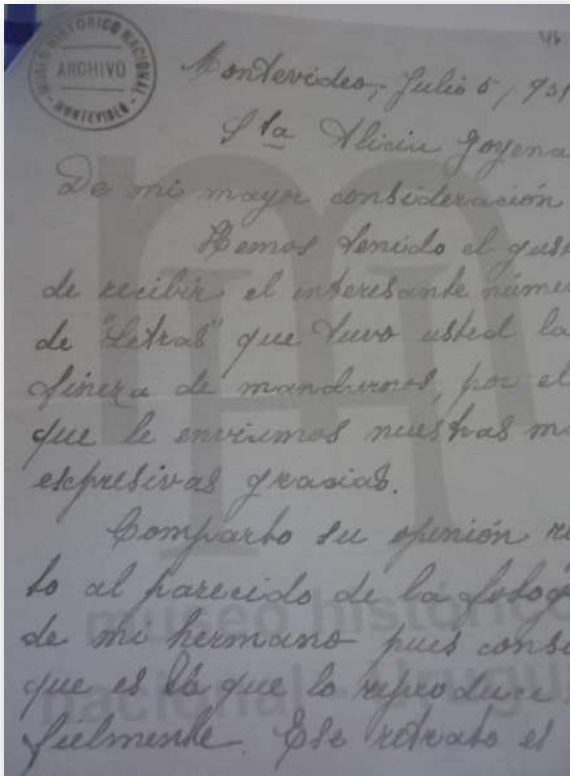 46
MUSEO HISTORICO NACIONAL
ARCHIVO
MONTEVIDEO
Montevideo, Julio 5, 931
Sta Alicia Goyena
De mi mayor consideración
Hemos tenido el gust
de recibir el interesante núme
de "Letras" que tuvo usted la
fineza de mandarnos, por el
que le enviamos nuestras m
expresivas gracias.
Comparto su opinión re
to al parecido de la fotog
de mi hermano pues consi
que es la que lo reproduce
fielmente. Ese retrato es
museo histórico
nacional - Urugu